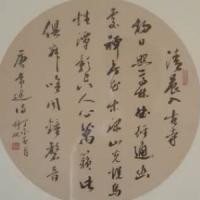 清晨入古寺
初日照高林曲徑通幽
處禪房花木深山光悦鳥
性潭影空人心萬籟此
俱寂唯聞鐘磬音
唐常建詩